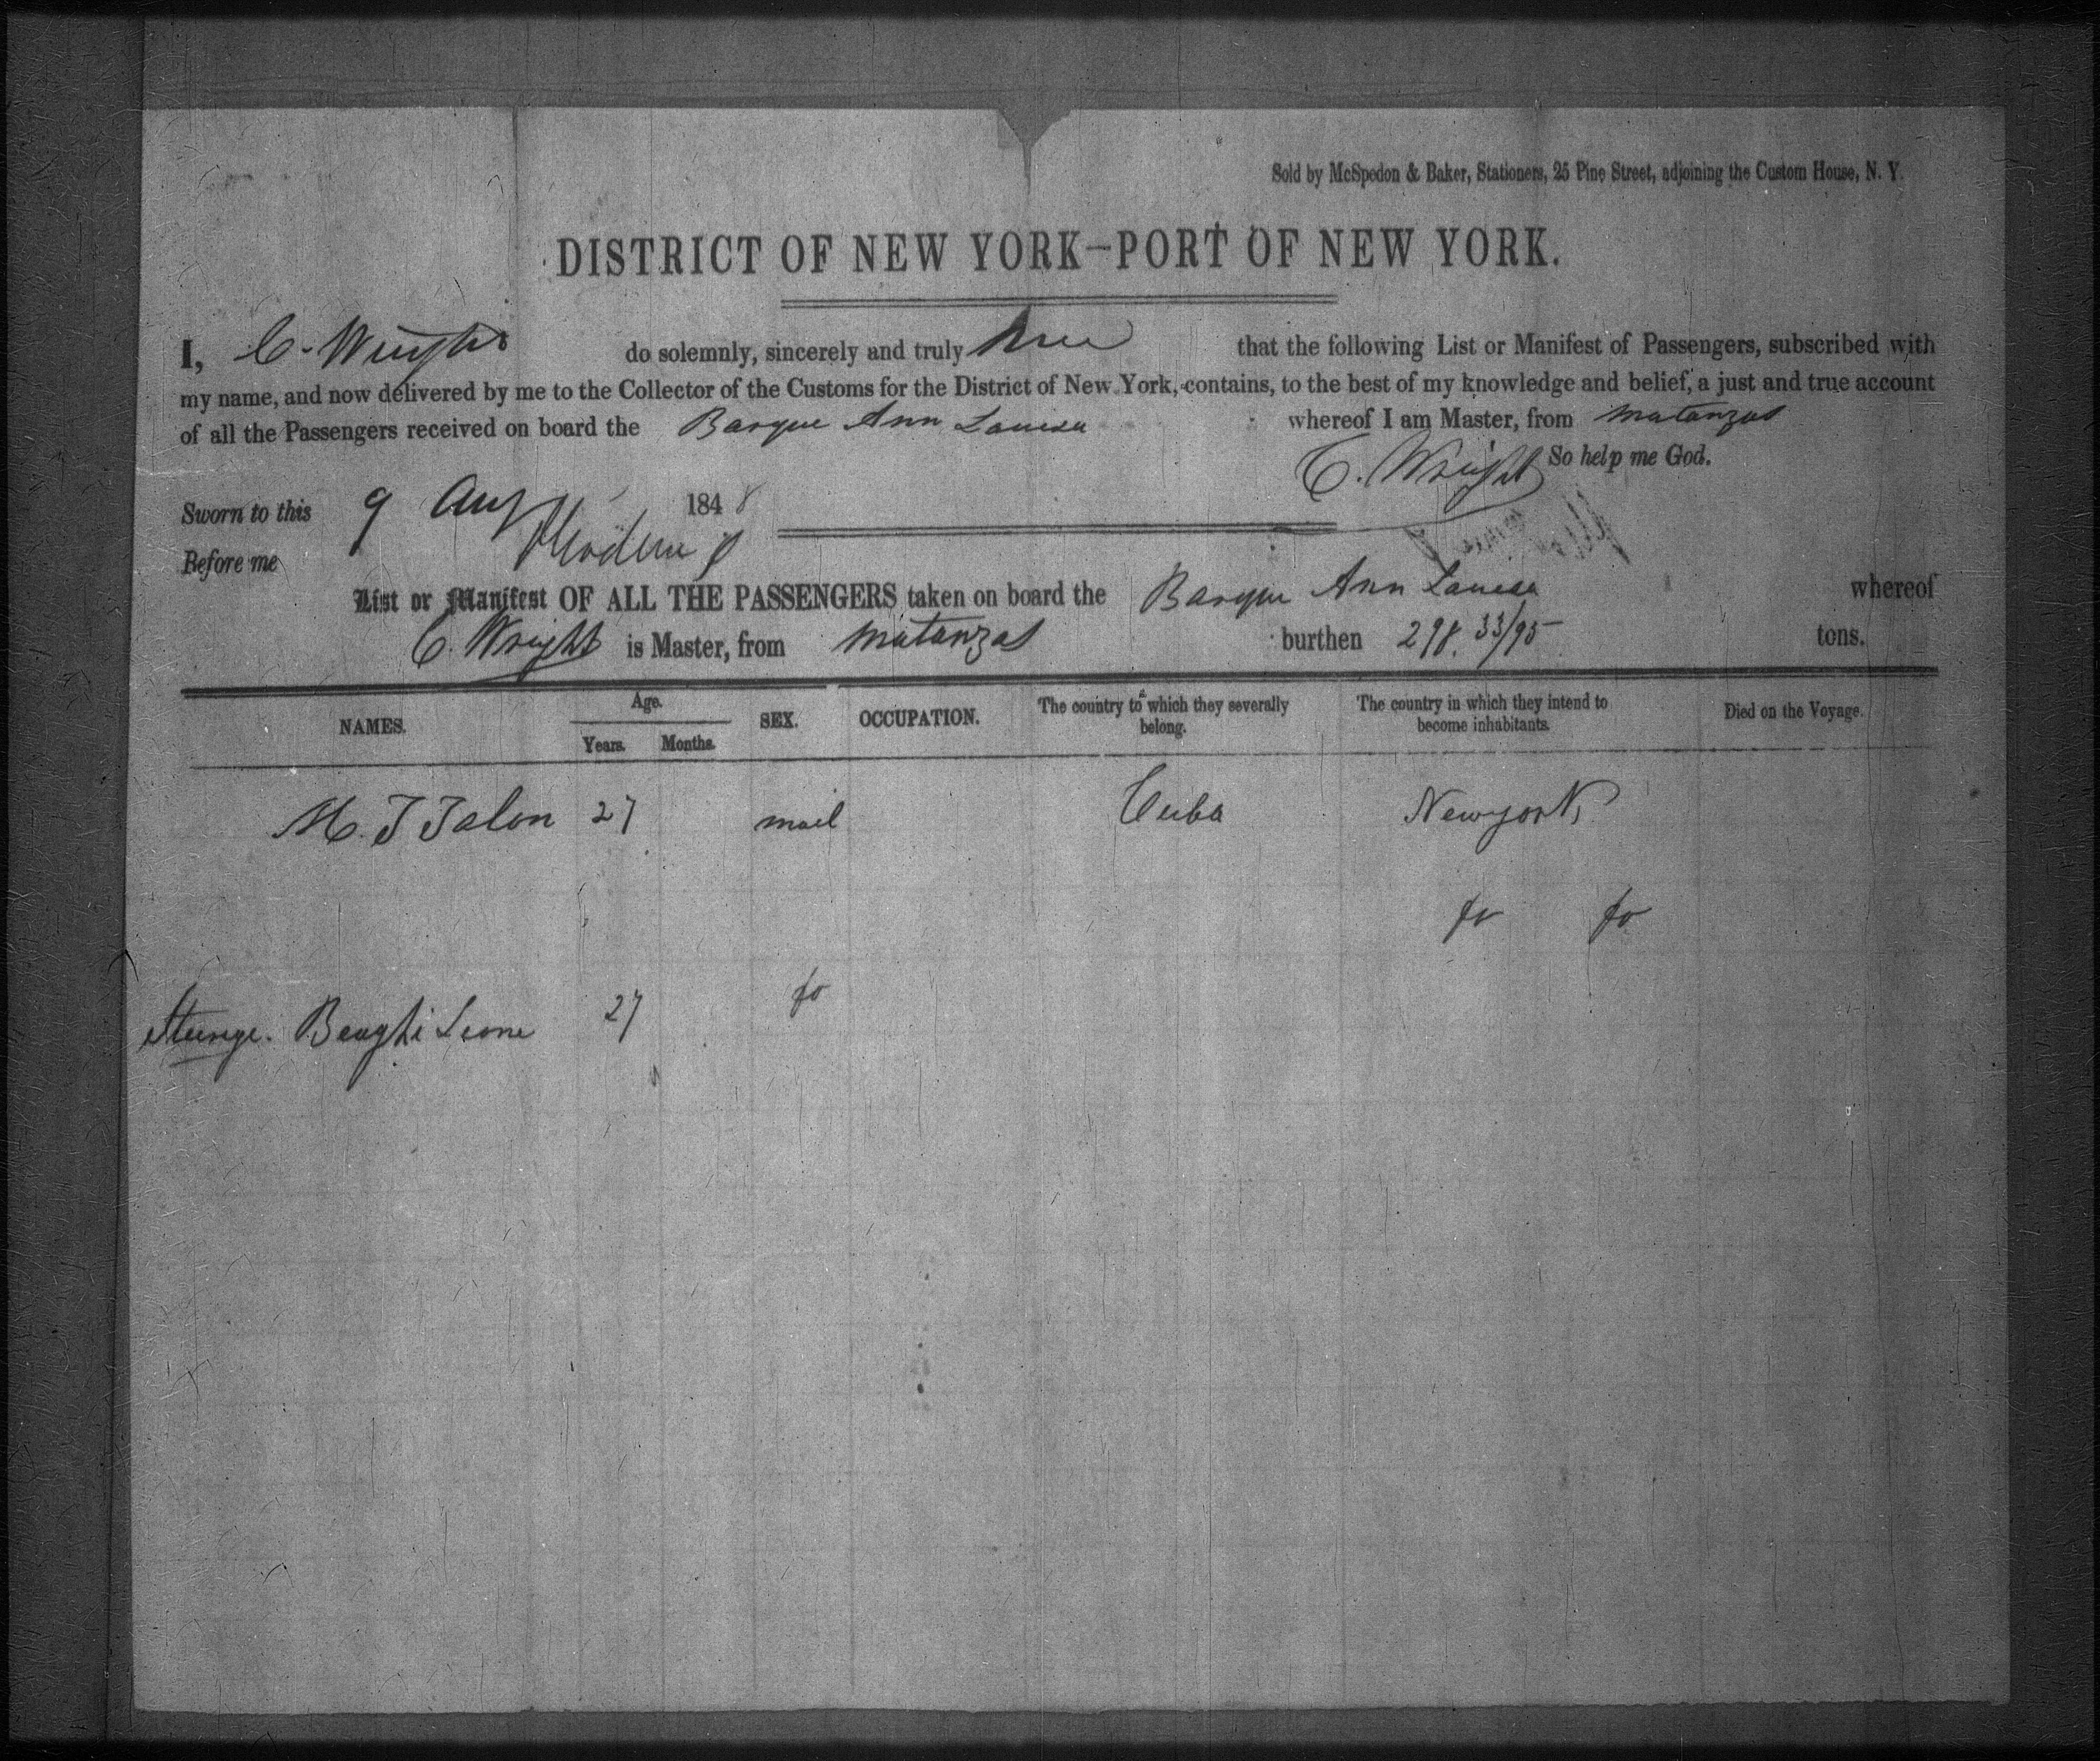 Sold by McSpedon & Baker, Stationers, 25 Pine Street, adjoining the Custom House, N. Y.
DISTRICT OF NEW YORK—PORT OF NEW YORK.
I, C. Wright do solemnly, sincerely and truly that the following List or Manifest of Passengers, subscribed with
my name, and now delivered by me to the Collector of the Customs for the District of New York, contains, to the best of my knowledge and belief, a just and true account
of all the Passengers received on board the Barque Ann Louisa whereof I am Master, from Matanzas
C. Wright So help me God.
Sworn to this 9 Aug 1848
Before me
List or Manifest OF ALL THE PASSENGERS taken on board the Barque Ann Louisa whereof
C. Wright is Master, from Matanzas burthen 298. 33/95 tons.
NAMES. Age. Years. Months. SEX. OCCUPATION. The country to which they severally belong. The country in which they intend to become inhabitants. Died on the Voyage.
M. T Talon 27 mail Cuba New york
do do
Steerage. Beaghi Leone 27 do